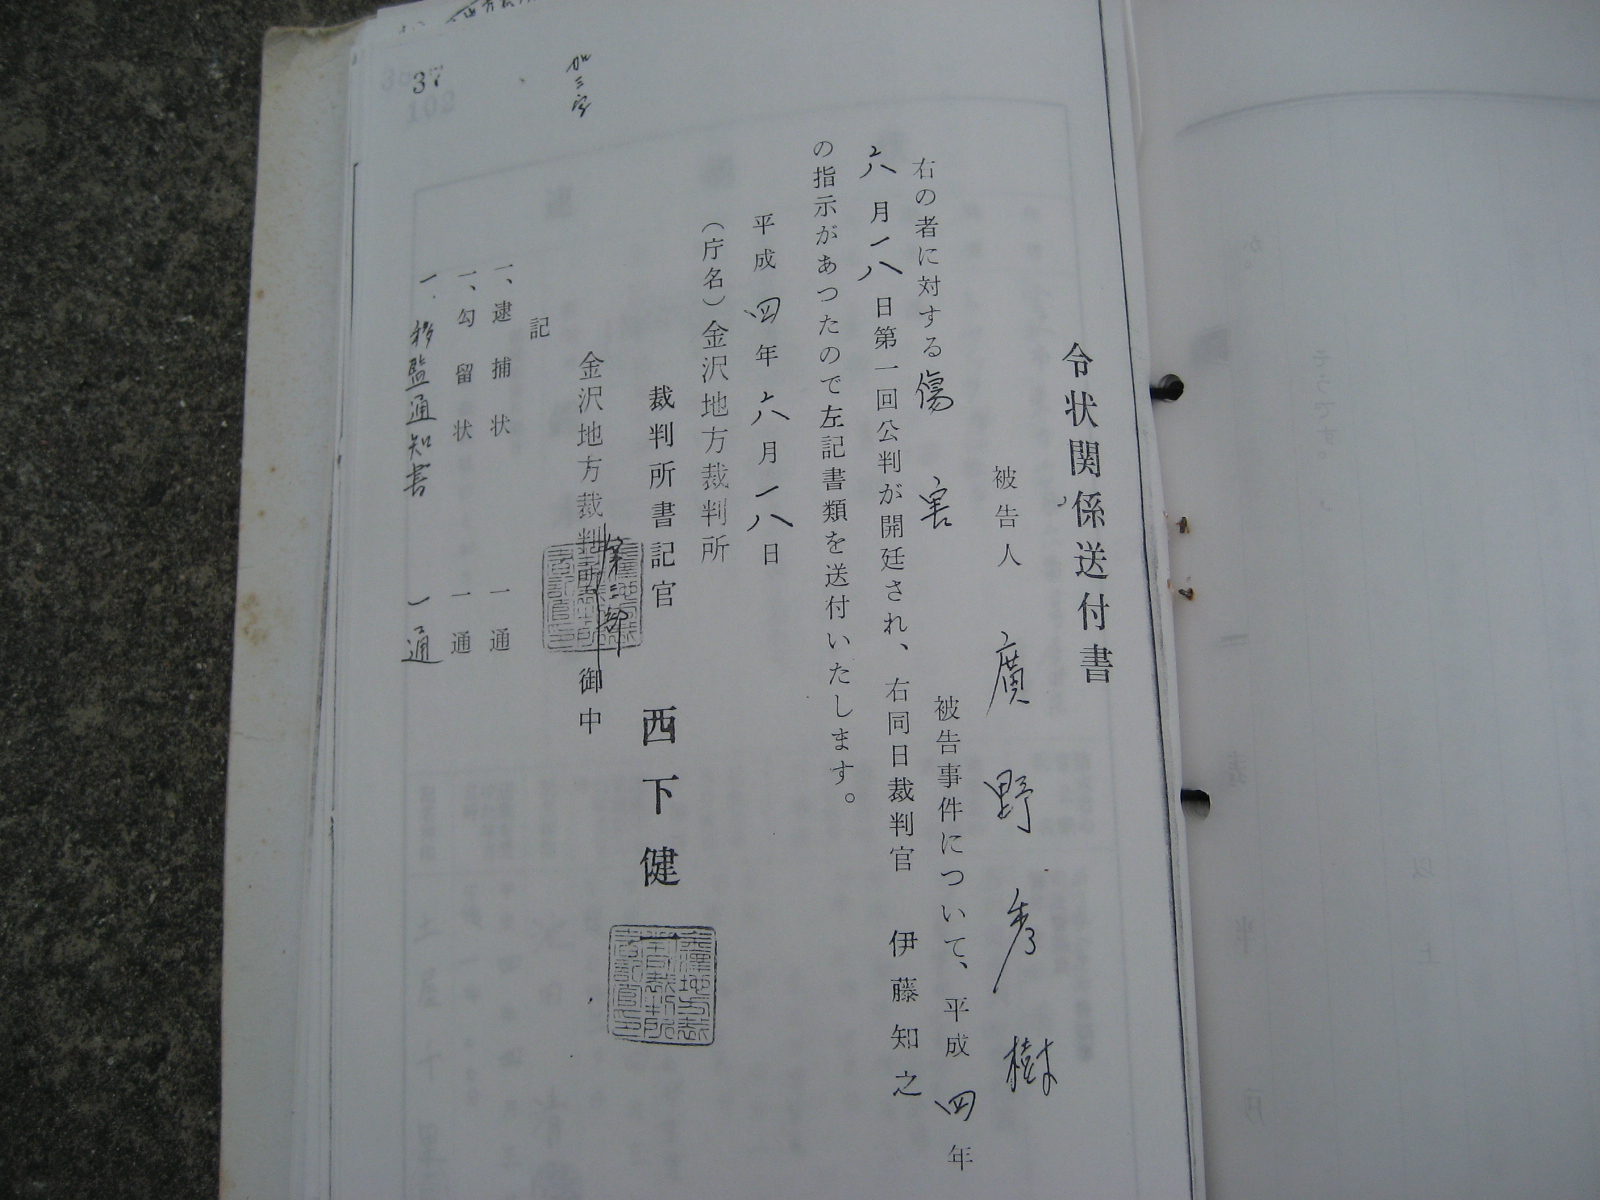 令状関係送付書
被告人 廣野秀樹
右の者に対する傷害被告事件について、平成四年
六月一八日第一回公判が開廷され、右同日裁判官 伊藤知之
の指示があつたので左記書類を送付いたします。
平成四年六月一八日
(庁名)金沢地方裁判所
裁判所書記官 西下健一
金沢地方裁判所第三部御中
記
一、逮捕状 一通
一、勾留状 一通
一、移監通知書 一通
加三字
37